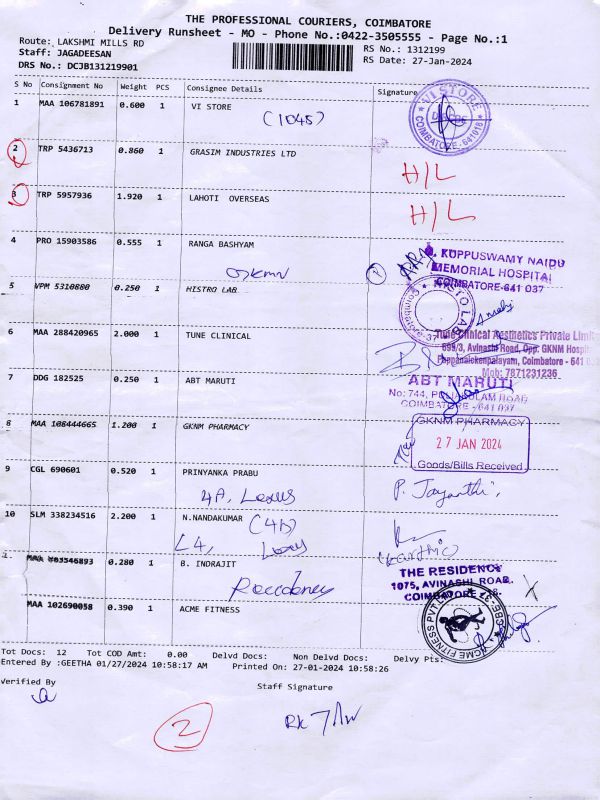 THE PROFESSIONAL COURIERS, COIMBATORE
Delivery Runsheet - MO - Phone No.:0422-3505555 - Page No.:1
Route: LAKSHMI MILLS RD
RS No.: 1312199
Staff: JAGADEESAN
RS Date: 27-Jan-2024
DRS No.: DCJB131219901
S No Consignment No Weight PCS Consignee Details Signature
1 MAA 106781891 0.600 1 VI STORE
(1045)
VI STORE
COIMBATORE-641018
2 TRP 5436713 0.860 1 GRASIM INDUSTRIES LTD
H/L
3 TRP 5957936 1.920 1 LAHOTI OVERSEAS
H/L
4 PRO 15903586 0.555 1 RANGA BASHYAM
KUPPUSWAMY NAIDU
MEMORIAL HOSPITAL
COIMBATORE-641 037
5 VPM 5310880 0.250 1 HISTRO LAB
Coimbatore-37
6 MAA 288420965 2.000 1 TUNE CLINICAL
Tune Clinical Aesthetics Private Limit
699/3, Avinashi Road, Opp. GKNM Hospi
Pappanaickenpalayam, Coimbatore - 641
Mob: 7871231236
7 DDG 182525 0.250 1 ABT MARUTI
ABT MARUTI
No: 744, ROAD
COIMBATORE - 641 037
8 MAA 108444665 1.200 1 GKNM PHARMACY
GKNM PHARMACY
27 JAN 2024
Goods/Bills Received
9 CGL 690601 0.520 1 PRINYANKA PRABU
4A, Lexus
P. Jayanthi
10 SLM 338234516 2.200 1 N.NANDAKUMAR
(4A)
L4,
(Karthic)
MAA 0.280 1 B. INDRAJIT
THE RESIDENCY
1075, AVINASHI ROAD.
COIMBATORE
MAA 102690058 0.390 1 ACME FITNESS
ACME FITNESS PVT
Tot Docs: 12 Tot COD Amt: 0.00 Delvd Docs: Non Delvd Docs: Delvy Pts:
Entered By :GEETHA 01/27/2024 10:58:17 AM Printed On: 27-01-2024 10:58:26
Verified By
Staff Signature
2